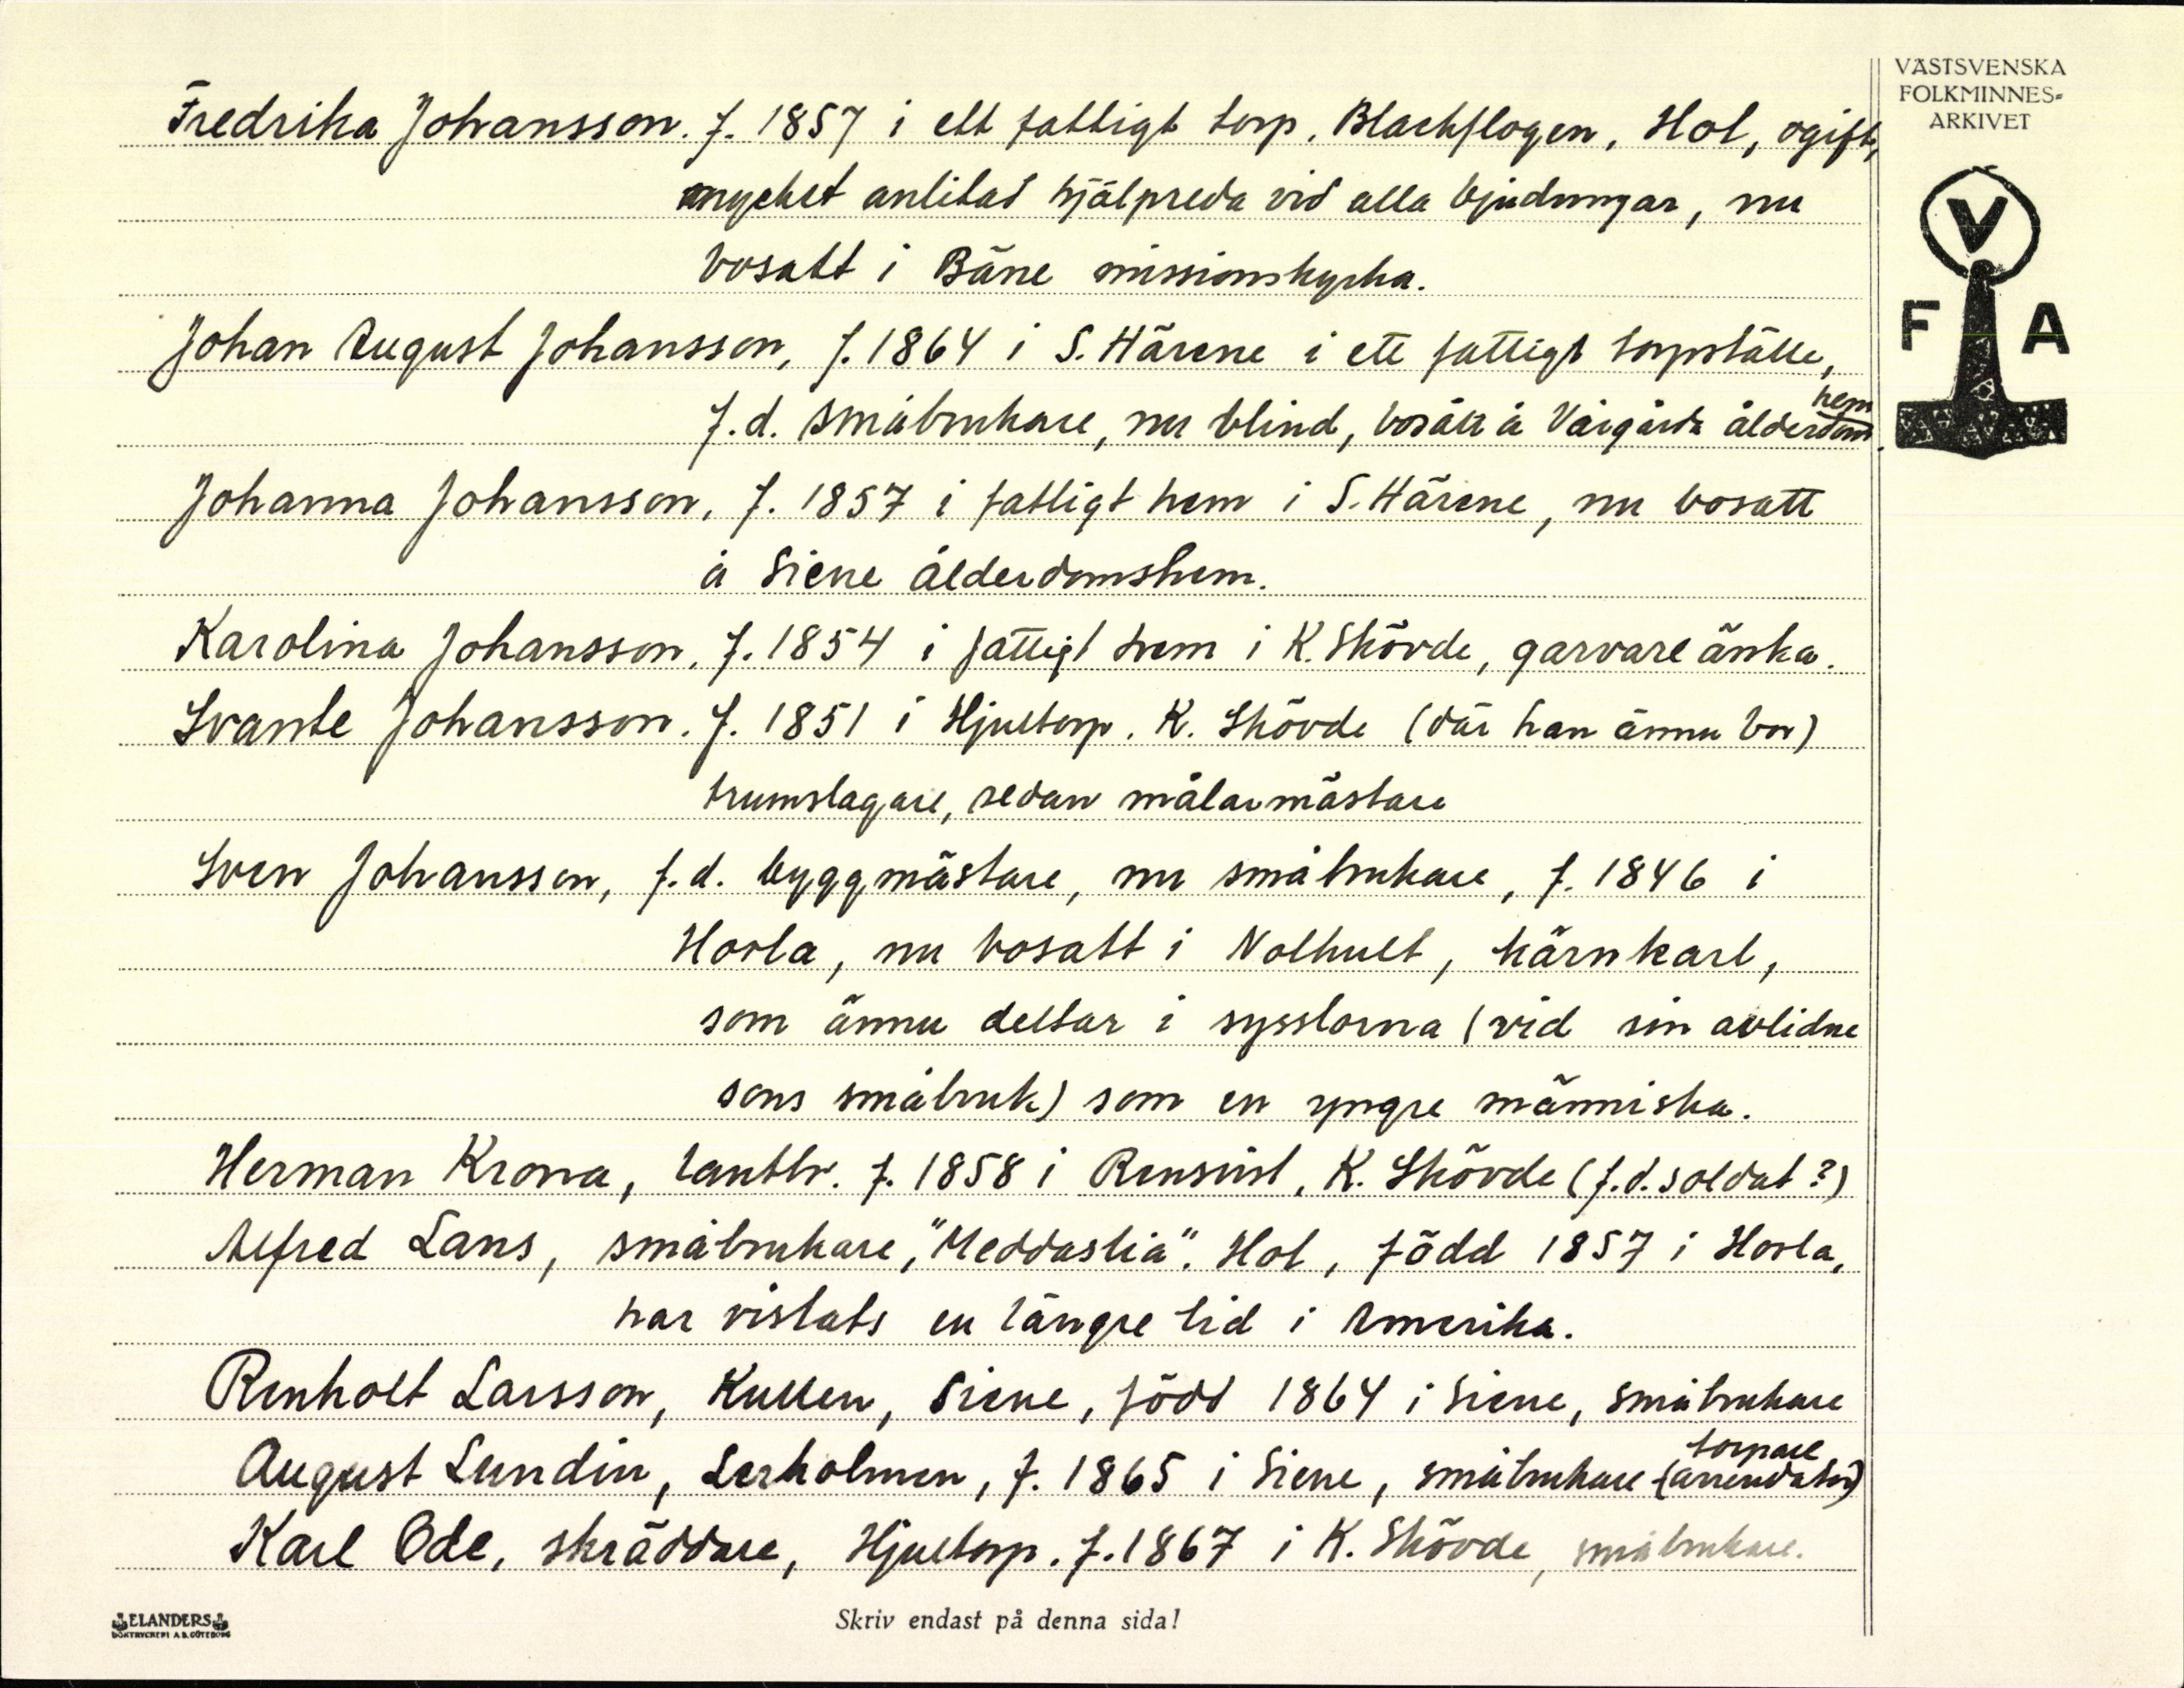 VÄSTSVENSKA
FOLKMINNES-
ARKIVET
V
F A
Fredrika Johansson. f. 1857 i ett fattigt torp, Blackflogen, Hol, ogift,
mycket anlitad hjälpreda vid alla bjudningar, nu
bosatt i Bäne missionskyrka.
Johan August Johansson, f. 1864 i S. Härene i ett fattigt torpställe,
f.d. småbrukare, nu blind, bosatt å Vårgårda ålderdomshem.
Johanna Johansson, f. 1857 i fattigt hem i S. Härene, nu bosatt
å Siene ålderdomshem.
Karolina Johansson, f. 1854 i fattigt hem i K. Skövde, garvare änka.
Svante Johansson. f. 1851 i Hjultorp. K. Skövde (där han ännu bor)
trumslagare, sedan målarmästare
Sven Johansson, f.d. byggmästare, nu småbrukare, f. 1846 i
Horla, nu bosatt i Nolhult, kärnkarl,
som ännu deltar i sysslorna (vid sin avlidne
sons småbruk) som en yngre människa.
Herman Krona, lantbr. f. 1858 i K. Skövde (f.d. soldat?)
Alfred Lans, småbrukare, "Meddaslia". Hol, född 1857 i Horla,
har vistats en längre tid i Amerika.
Renholt Larsson, Kullen, Siene, född 1864 i Siene, småbrukare
August Lundin, Lerholmen, f. 1865 i Siene, småbrukare (arrendator) torpare
Karl Ode, skräddare, Hjultorp. f. 1867 i K. Skövde, småbrukare.
ELANDERS
BOKTRYCKERI A.B. GÖTEBORG
Skriv endast på denna sida!